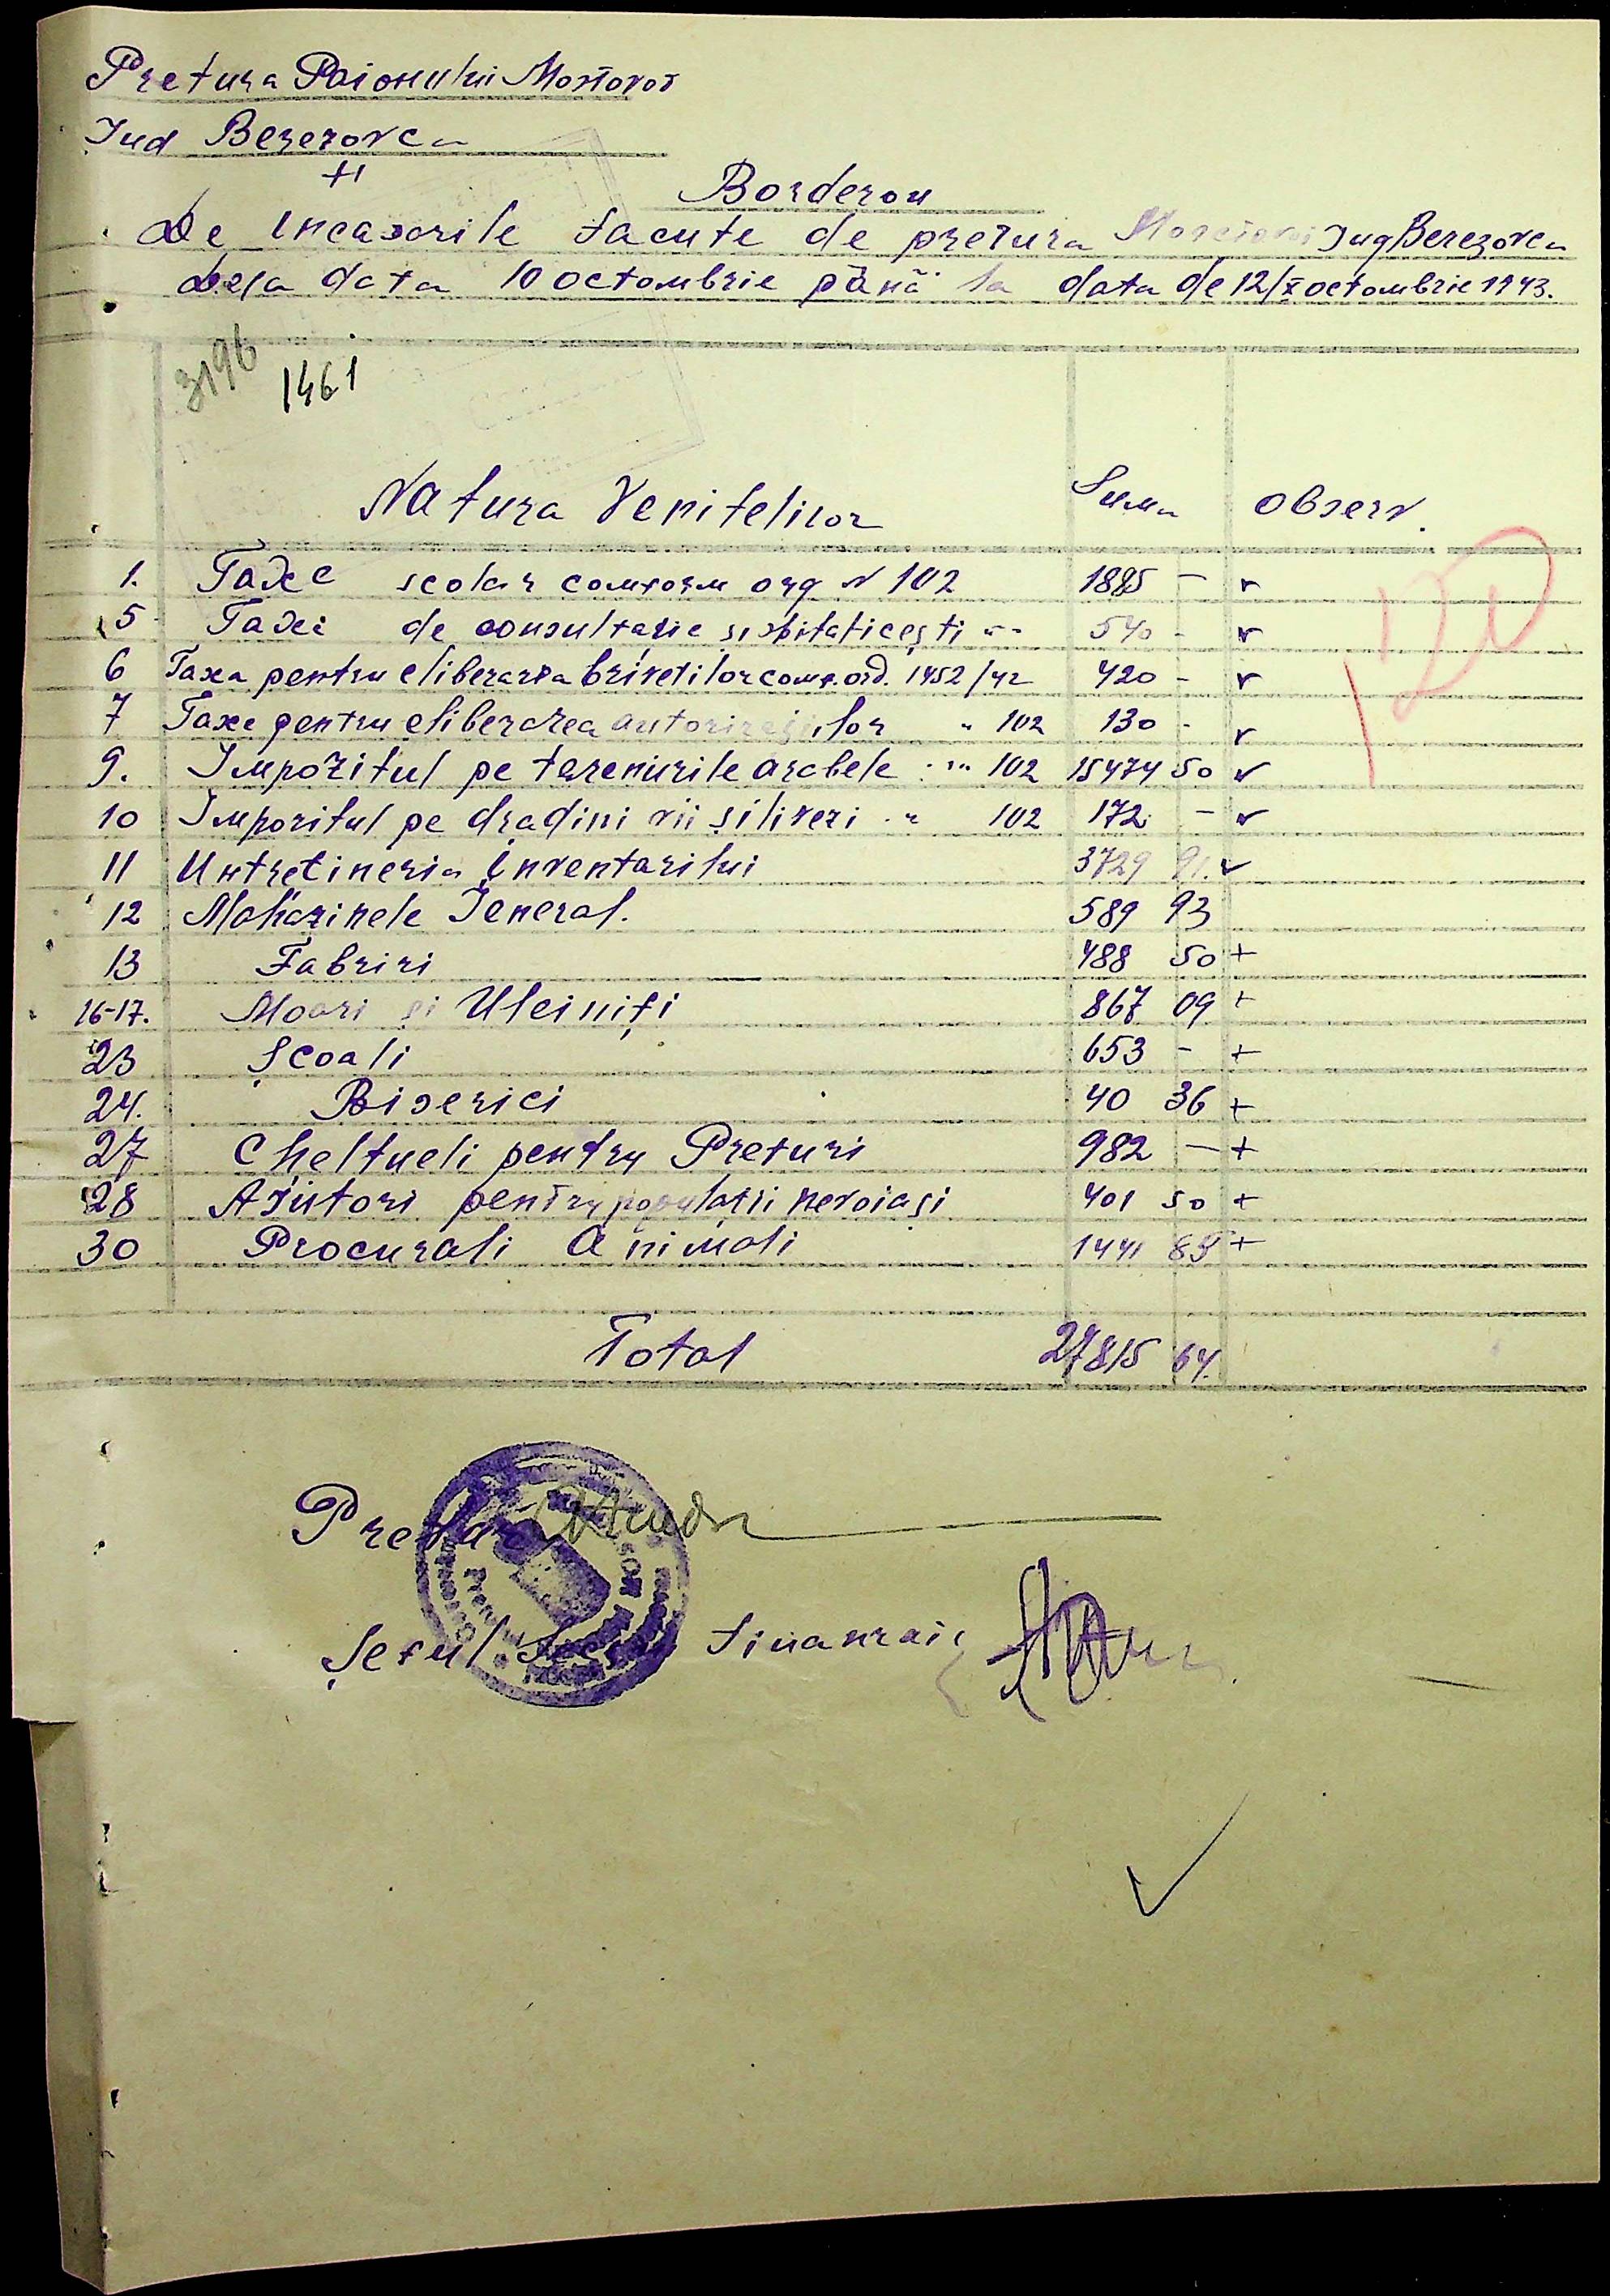 Pretura Raionului Mostovoi
Jud Berezovca
Borderou
De incasarile facute de pretura Mostovoi Jug Berezovca
Dela data 10 octombrie pănă la data de 12/X octombrie 1943.
3196
1461
Natura Venitelilor Suma Observ.
120
1. Taxe scolar comform org N 102 1885 -
5 Taxei de consultatie si spitaticești -"- 540 -
6 Taxa pentru eliberarea brivetilor comf. ord. 1452/42 420 -
7 Taxe pentru eliberarea autorizațiilor " 102 130 -
9. Impozitul pe tareniurile arabele -"- 102 15474 50
10 Impozitul pe dradini vii și livezi -"- 102 172 -
11 Untretineria inventarilui 3729 91.
12 Mahazinele General. 589 93
13 Fabrici 488 50 +
16-17. Moori și Uleiniți 867 09 +
23 Școali 653 - +
24. Biserici 40 36 +
27 Cheltueli pentry Preturi 982 - +
28 Ajutori pentry populatii nevoiași 401 50 +
30 Procurali Animali 1441 85 +
Total 27815 64.
Pretor
Șeful Sec finanzaic